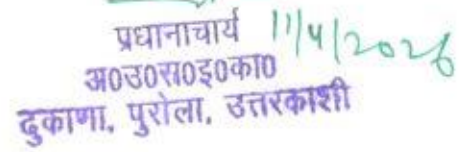 प्रधानाचार्य 11/4/2026
अ०उ०रा०इ०का०
दुकाणा, पुरोला, उत्तरकाशी